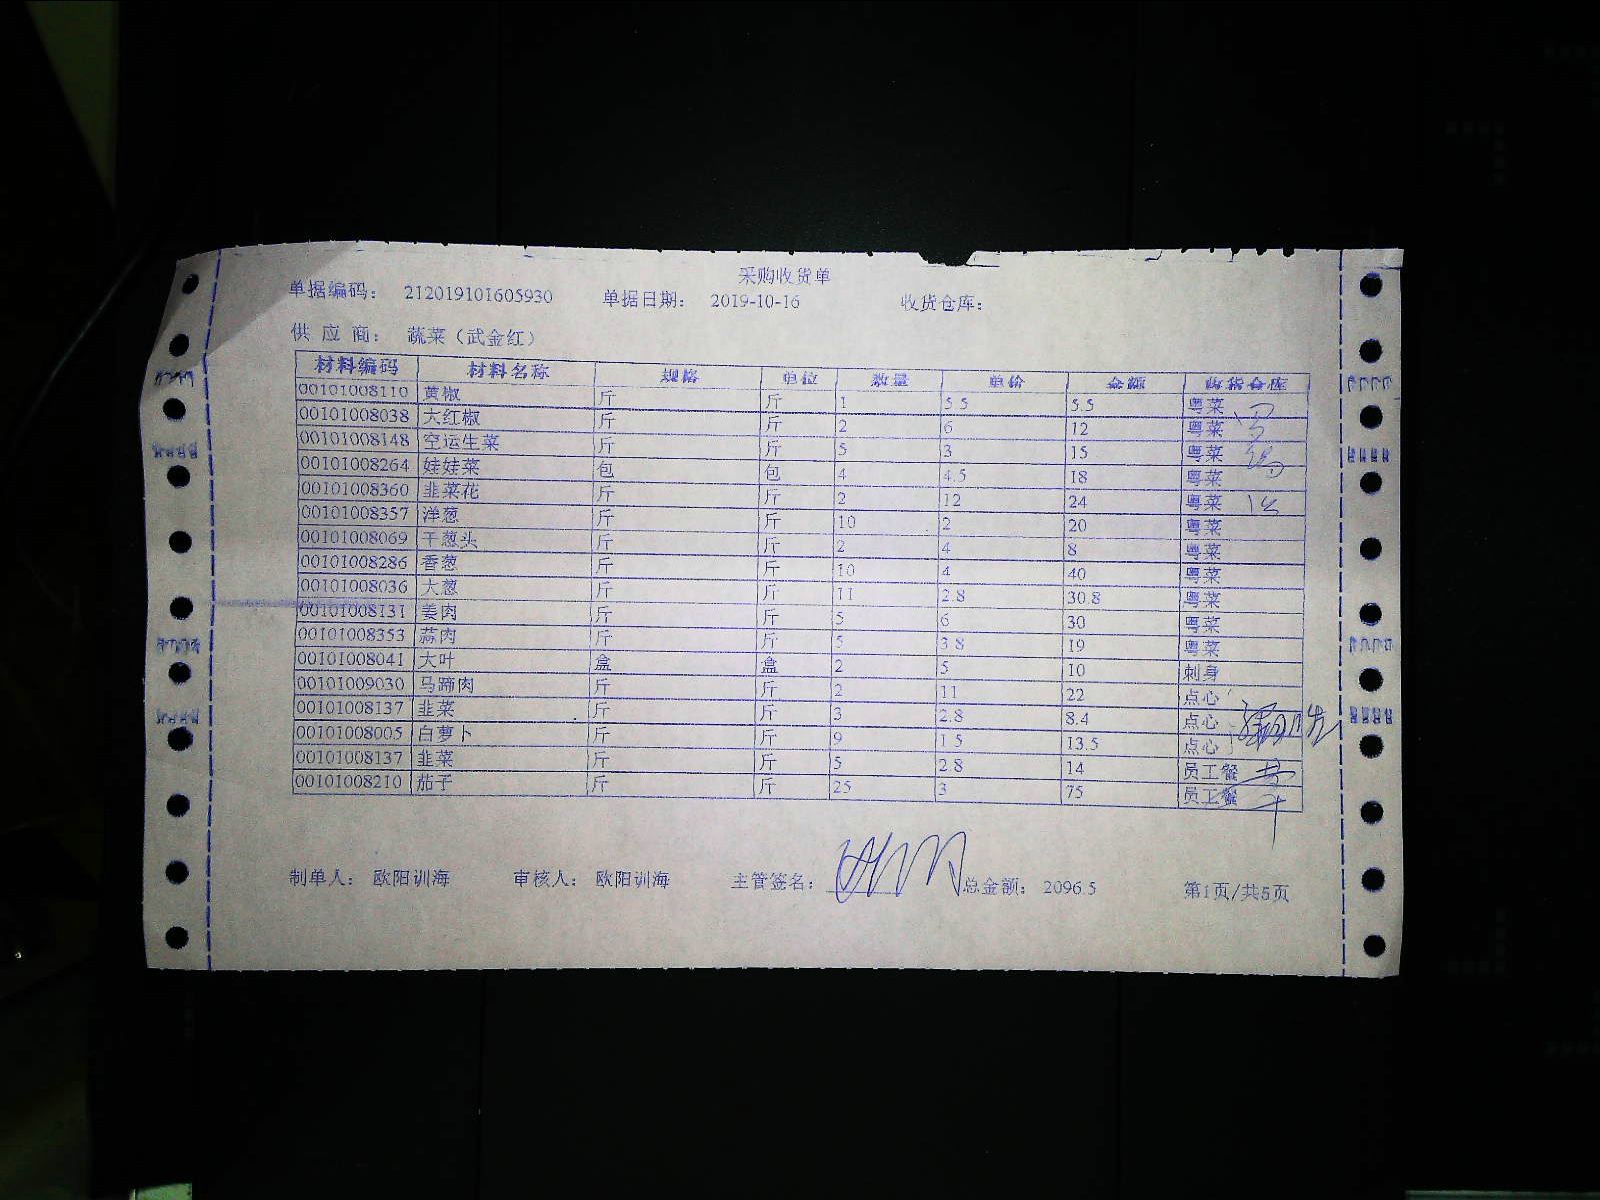 采购收货单
单据编码： 212019101605930 单据日期： 2019-10-16 收货仓库：
供 应 商： 蔬菜（武金红）
材料编码 材料名称 规格 单位 数量 单价 金额 收货仓库
00101008110 黄椒 斤 斤 1 5.5 5.5 粤菜
00101008038 大红椒 斤 斤 2 6 12 粤菜
00101008148 空运生菜 斤 斤 5 3 15 粤菜
00101008264 娃娃菜 包 包 4 4.5 18 粤菜
00101008360 韭菜花 斤 斤 2 12 24 粤菜
00101008357 洋葱 斤 斤 10 2 20 粤菜
00101008069 干葱头 斤 斤 2 4 8 粤菜
00101008286 香葱 斤 斤 10 4 40 粤菜
00101008036 大葱 斤 斤 11 2.8 30.8 粤菜
00101008131 姜肉 斤 斤 5 6 30 粤菜
00101008353 蒜肉 斤 斤 5 3.8 19 粤菜
00101008041 大叶 盒 盒 2 5 10 刺身
00101009030 马蹄肉 斤 斤 2 11 22 点心
00101008137 韭菜 斤 斤 3 2.8 8.4 点心
00101008005 白萝卜 斤 斤 9 1.5 13.5 点心
00101008137 韭菜 斤 斤 5 2.8 14 员工餐
00101008210 茄子 斤 斤 25 3 75 员工餐
制单人： 欧阳训海 审核人： 欧阳训海 主管签名： 总金额： 2096.5 第1页/共5页